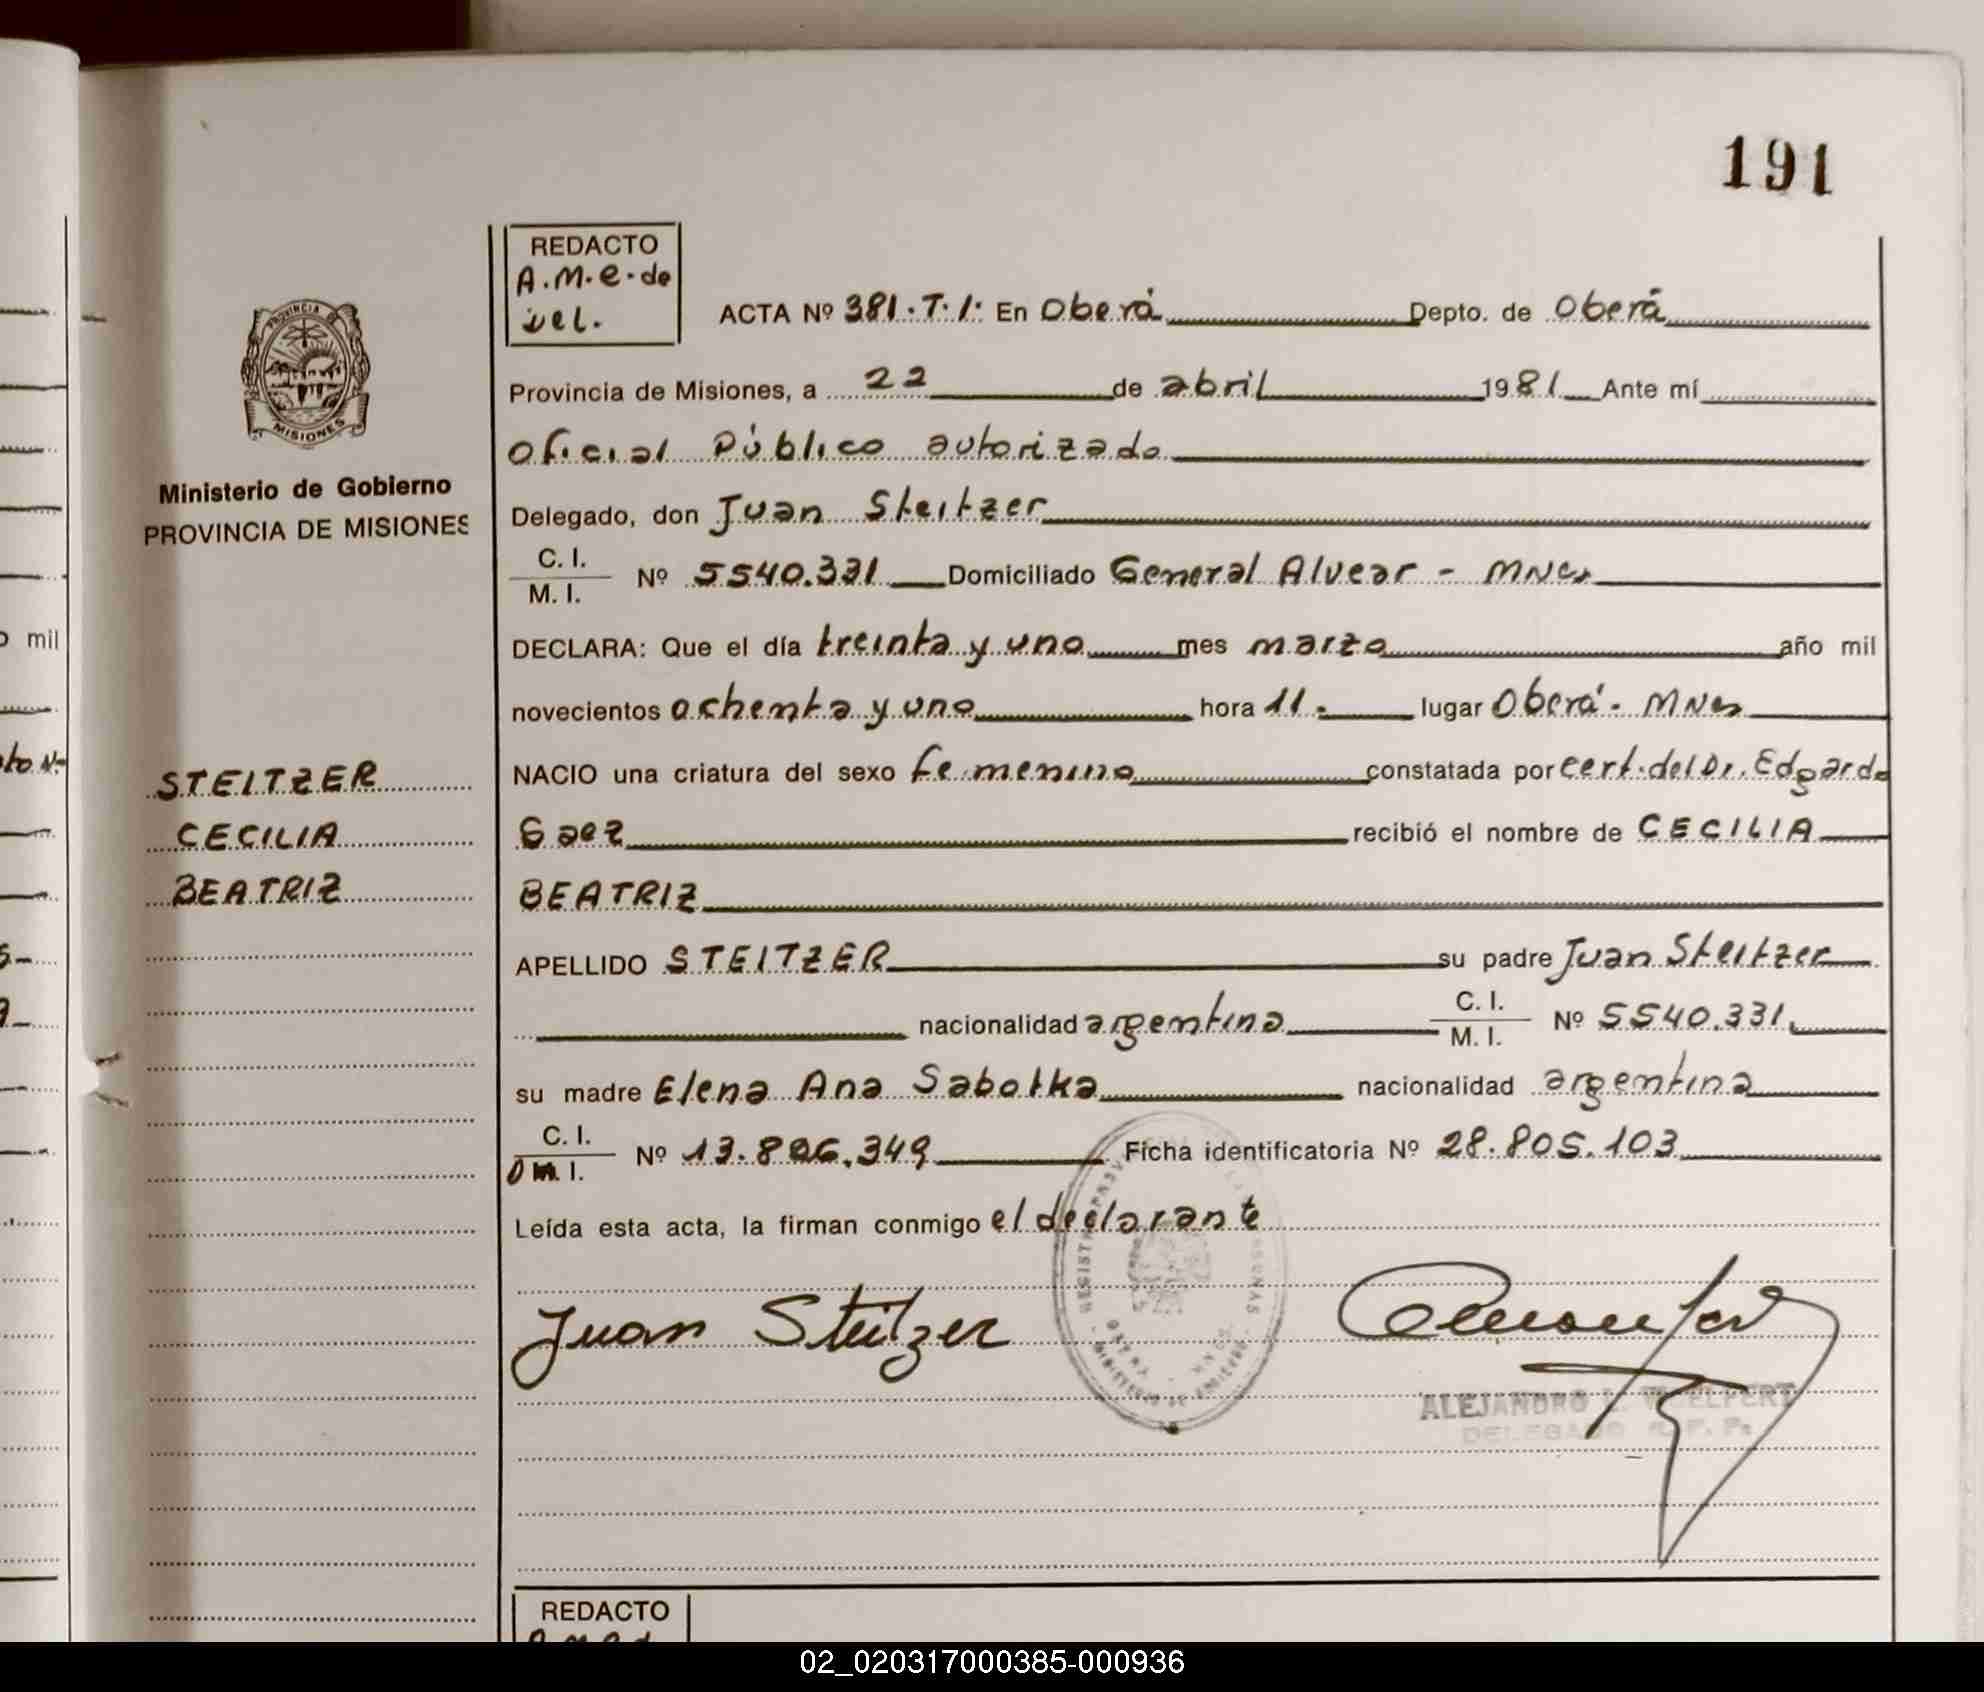 191
REDACTO
A.M.e.de
vel.
ACTA Nº 381.T.I. En Oberá Depto. de Oberá
Provincia de Misiones, a 22 de abril 1981 Ante mí
Oficial Público autorizado
Delegado, don Juan Steitzer
C. I.
M. I. Nº 5540.331 Domiciliado General Alvear - MNes
DECLARA: Que el día treinta y uno mes marzo año mil
novecientos ochenta y uno hora 11.- lugar Oberá - MNes
NACIO una criatura del sexo femenino constatada por cert. del Dr. Edgardo
recibió el nombre de CECILIA
BEATRIZ
APELLIDO STEITZER su padre Juan Steitzer
nacionalidad argentina C. I.
M. I. Nº 5540.331
su madre Elena Ana Sabotka nacionalidad argentina
C. I.
D M. I. Nº 13.806.349 Ficha identificatoria Nº 28.805.103
Leída esta acta, la firman conmigo el declarante
Juan Steitzer
ALEJANDRO L. WOELFERT
DELEGADO
PROVINCIA DE
MISIONES
Ministerio de Gobierno
PROVINCIA DE MISIONES
STEITZER
CECILIA
BEATRIZ
o mil
REDACTO
02_020317000385-000936